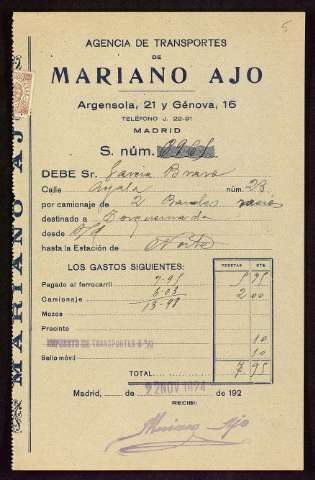 5
AGENCIA DE TRANSPORTES
DE
MARIANO AJO
Argensola, 21 y Génova, 16
TELÉFONO J. 22-91
MADRID
S. núm.
DEBE Sr. Garcia Bravo
Calle Ayala núm. 23
por camionaje de 2 Baules vacios
destinado a Torquemada
desde
hasta la Estación de Norte
LOS GASTOS SIGUIENTES:
PESETAS CTS.
Pagado al ferrocarril
Camionaje 2 00
Mozos
Precinto 10
IMPUESTO DE TRANSPORTES
Sello móvil 10
TOTAL 7 95
Madrid, de 22 NOV 1924 de 192
RECIBÍ:
Mariano Ajo
MARIANO AJ